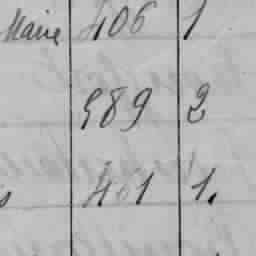 Marie 406 1
589 2
s 461 1.